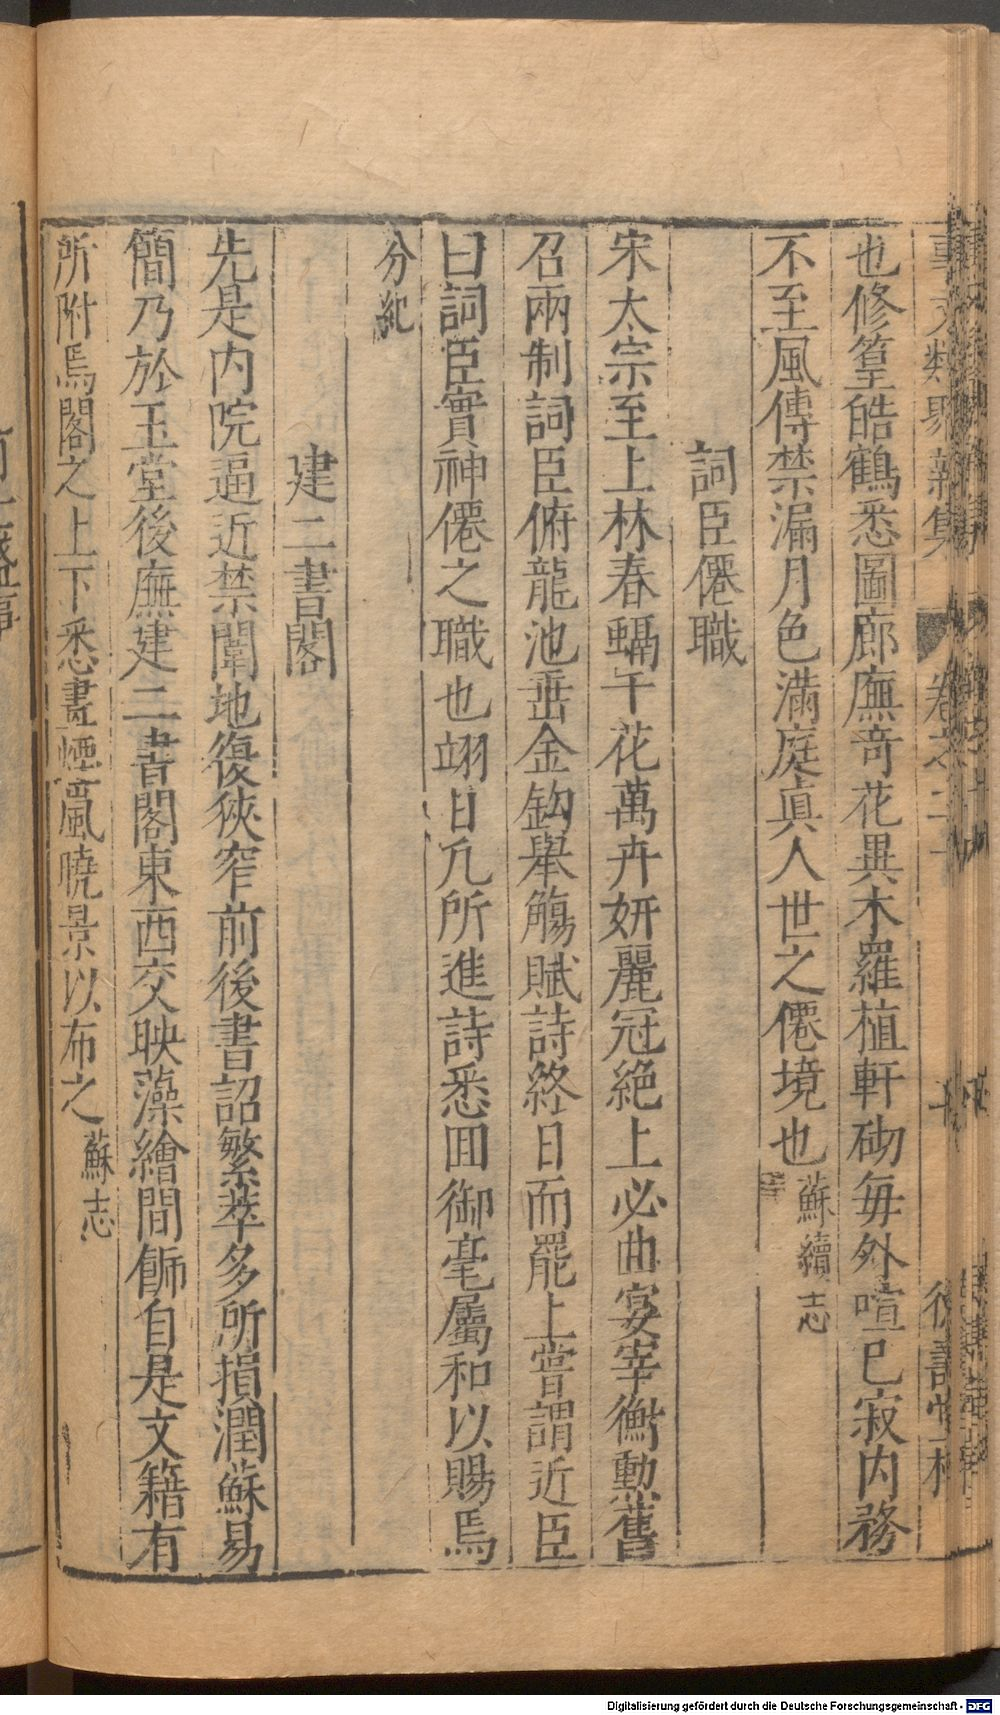 也修篁皓鶴悉圖廊廡竒花異木羅植軒砌毎外喧已寂内務
不至風傳禁漏月色滿庭真人世之僊境也蘇續志
詞臣僊職
宋太宗至上林春千花萬卉妍麗冠絶上必曲宴宰衡勲舊
召兩制詞臣俯龍池垂金鈎舉觴賦詩終日而罷上嘗謂近臣
曰詞臣實神僊之職也翊日凢所進詩悉囬御毫屬和以賜焉
分紀
建二書閣
先是内院逼近禁闈地復狹窄前後書詔繁萃多所損潤蘇易
簡乃於玉堂後廡建二書閣東西交映藻繪間飾自是文籍有
所附焉閣之上下悉畫煙嵐曉景以布之蘇志
Digitalisierung gefördert durch die Deutsche Forschungsgemeinschaft - DFG